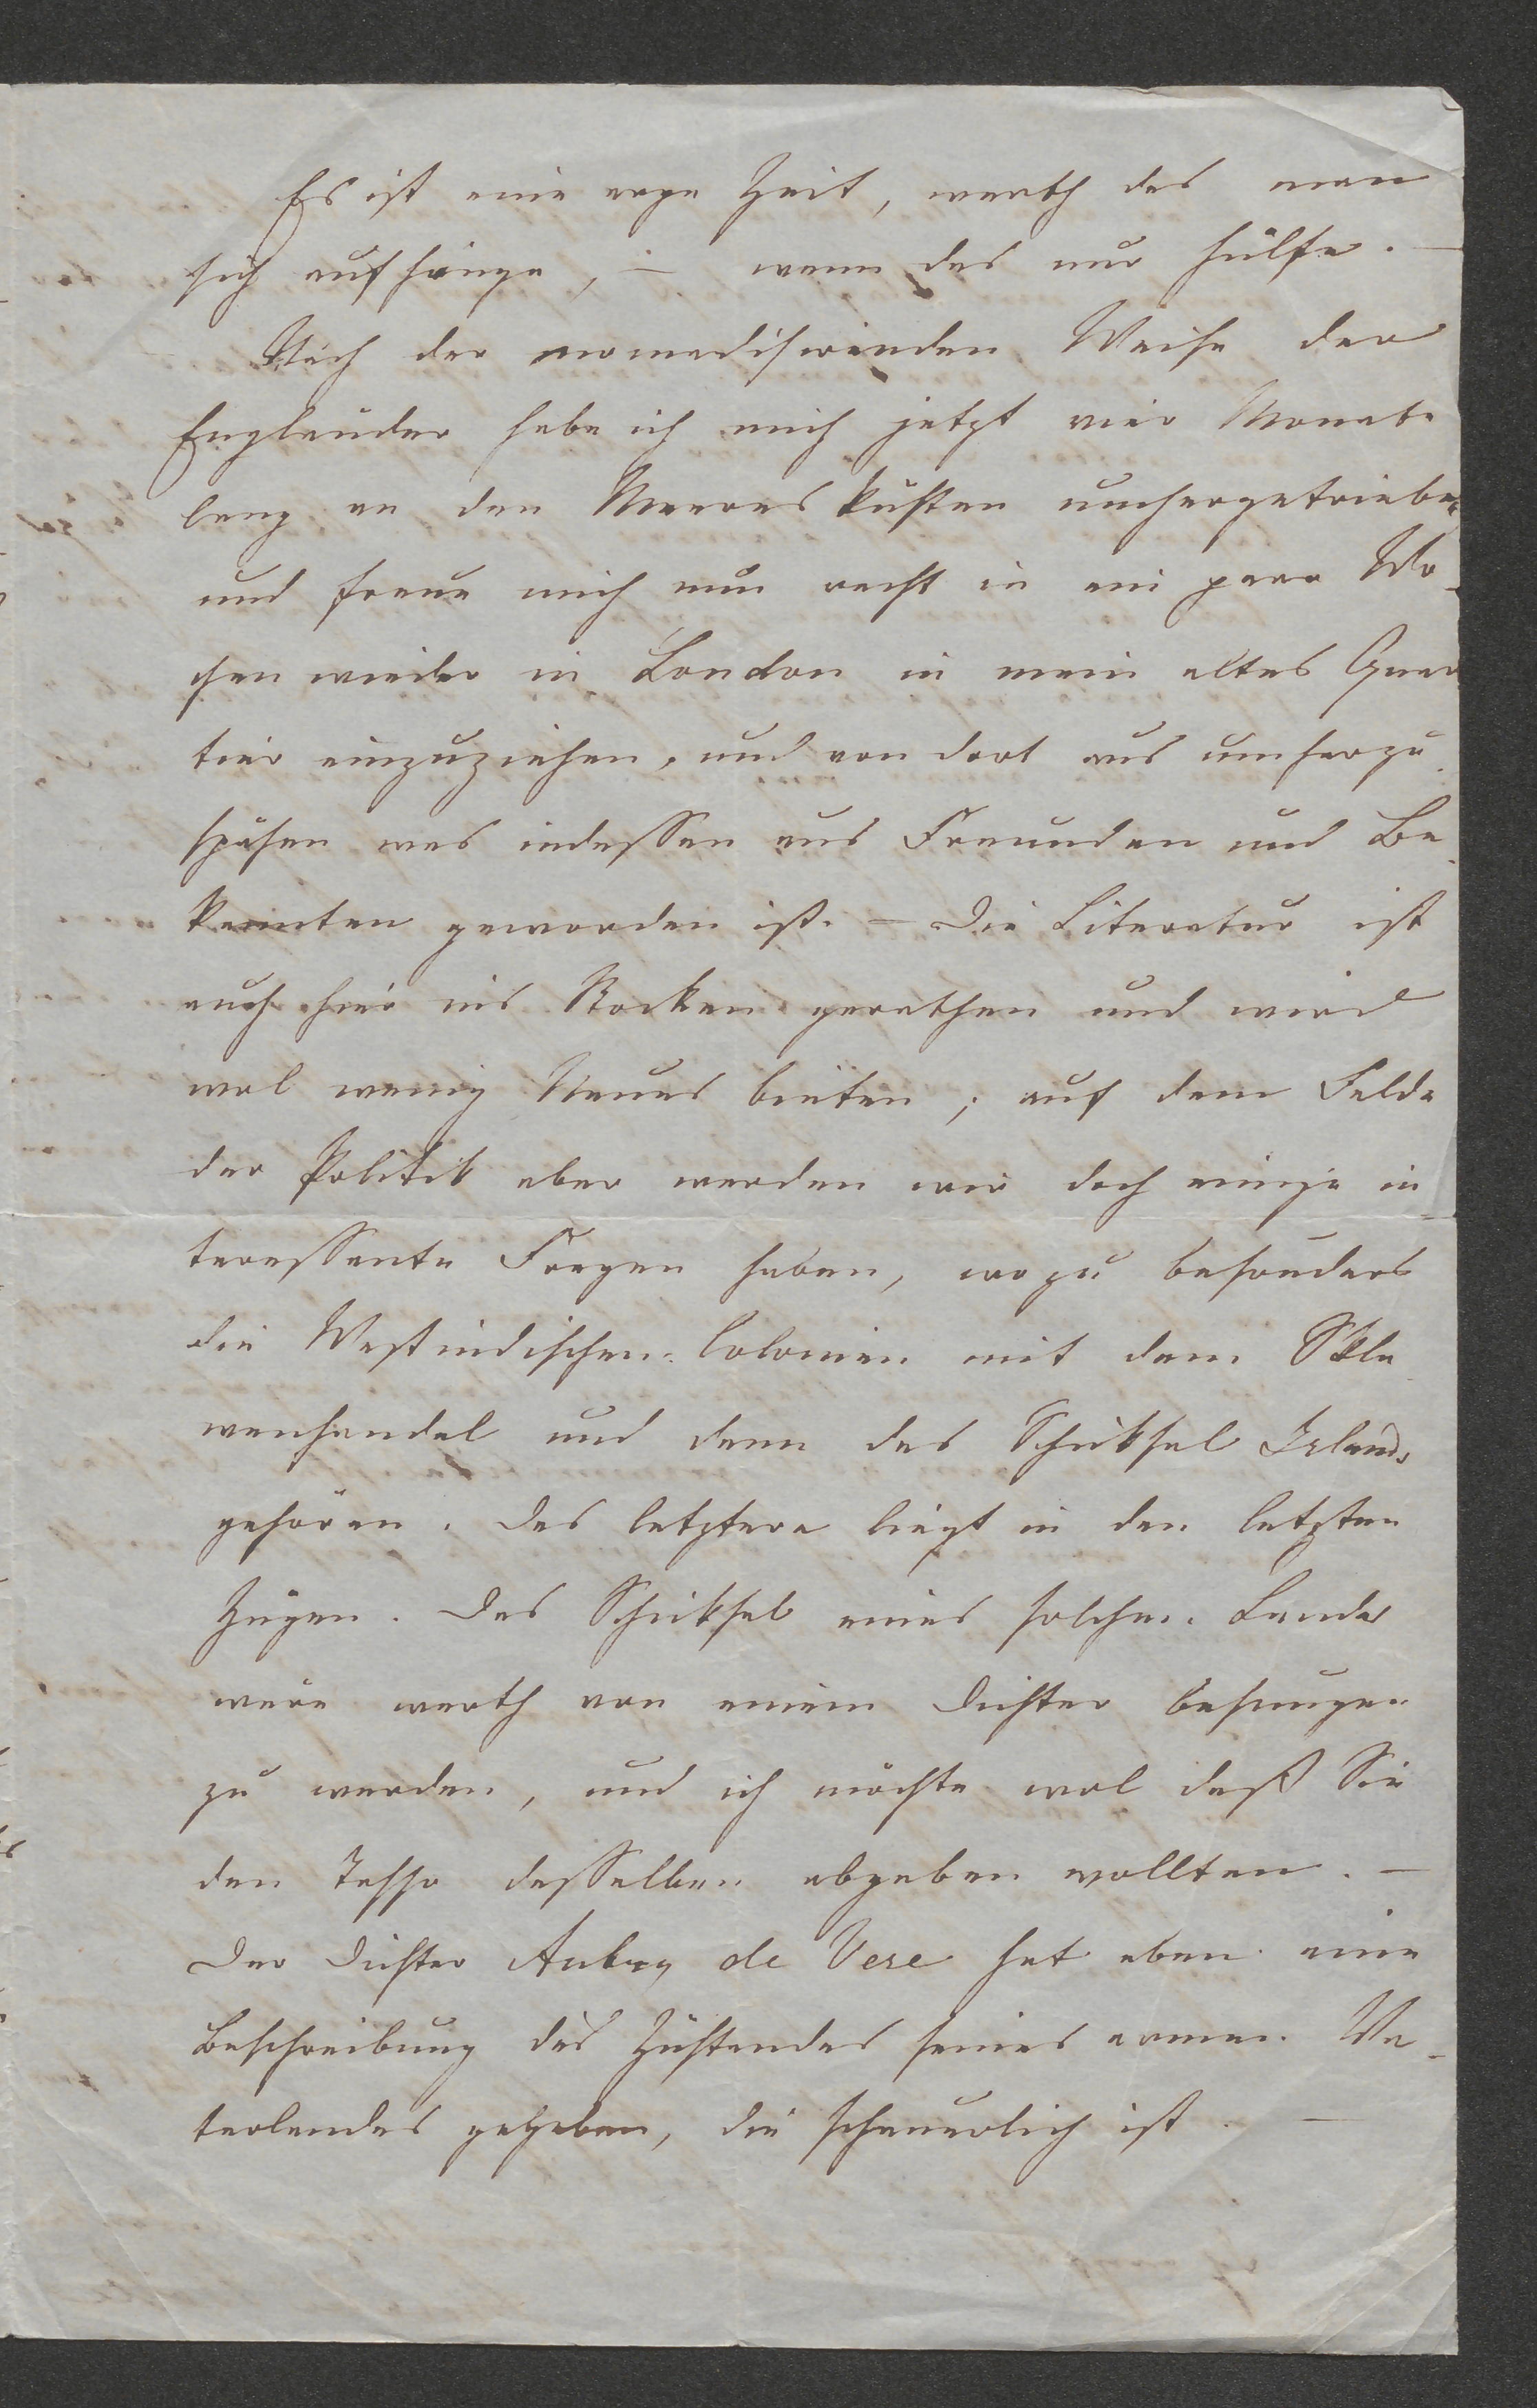 Es ist eine arge Zeit, werth das man
sich aufhänge, – wenn das nur hülfe. –
Nach der nomadisirenden Weise der
Engländer habe ich mich jetzt vier Monate
lang an den Meeresküsten umhergetrieben
und freue mich nun recht in ein paar Wo-
chen wieder in London in mein altes Quar
tier einzuziehen, und von dort aus umherzu-
spähen was indessen aus Freunden und Be-
kannten geworden ist. – Die Literatur ist
auch hier ins Stocken gerathen und wird
wol wenig Neues bieten; auf dem Felde
der Politik aber werden wir doch einige in-
teressante Fragen haben, wozu besonders
die Westindischen Colonien mit dem Skla
venhandel und dann das Schicksal Irlands
gehören. Das letztere liegt in den letzten
Zügen. Das Schicksal eines solchen Landes
wäre werth von einem Dichter besungen
zu werden, und ich möchte wol daß Sie
den Tasso desselben abgeben wollten. –
Der Dichter Aubrey de Vere hat eben eine
Beschreibung des Zustandes seines armen Va-
terlandes gegeben, die schauerlich ist. –